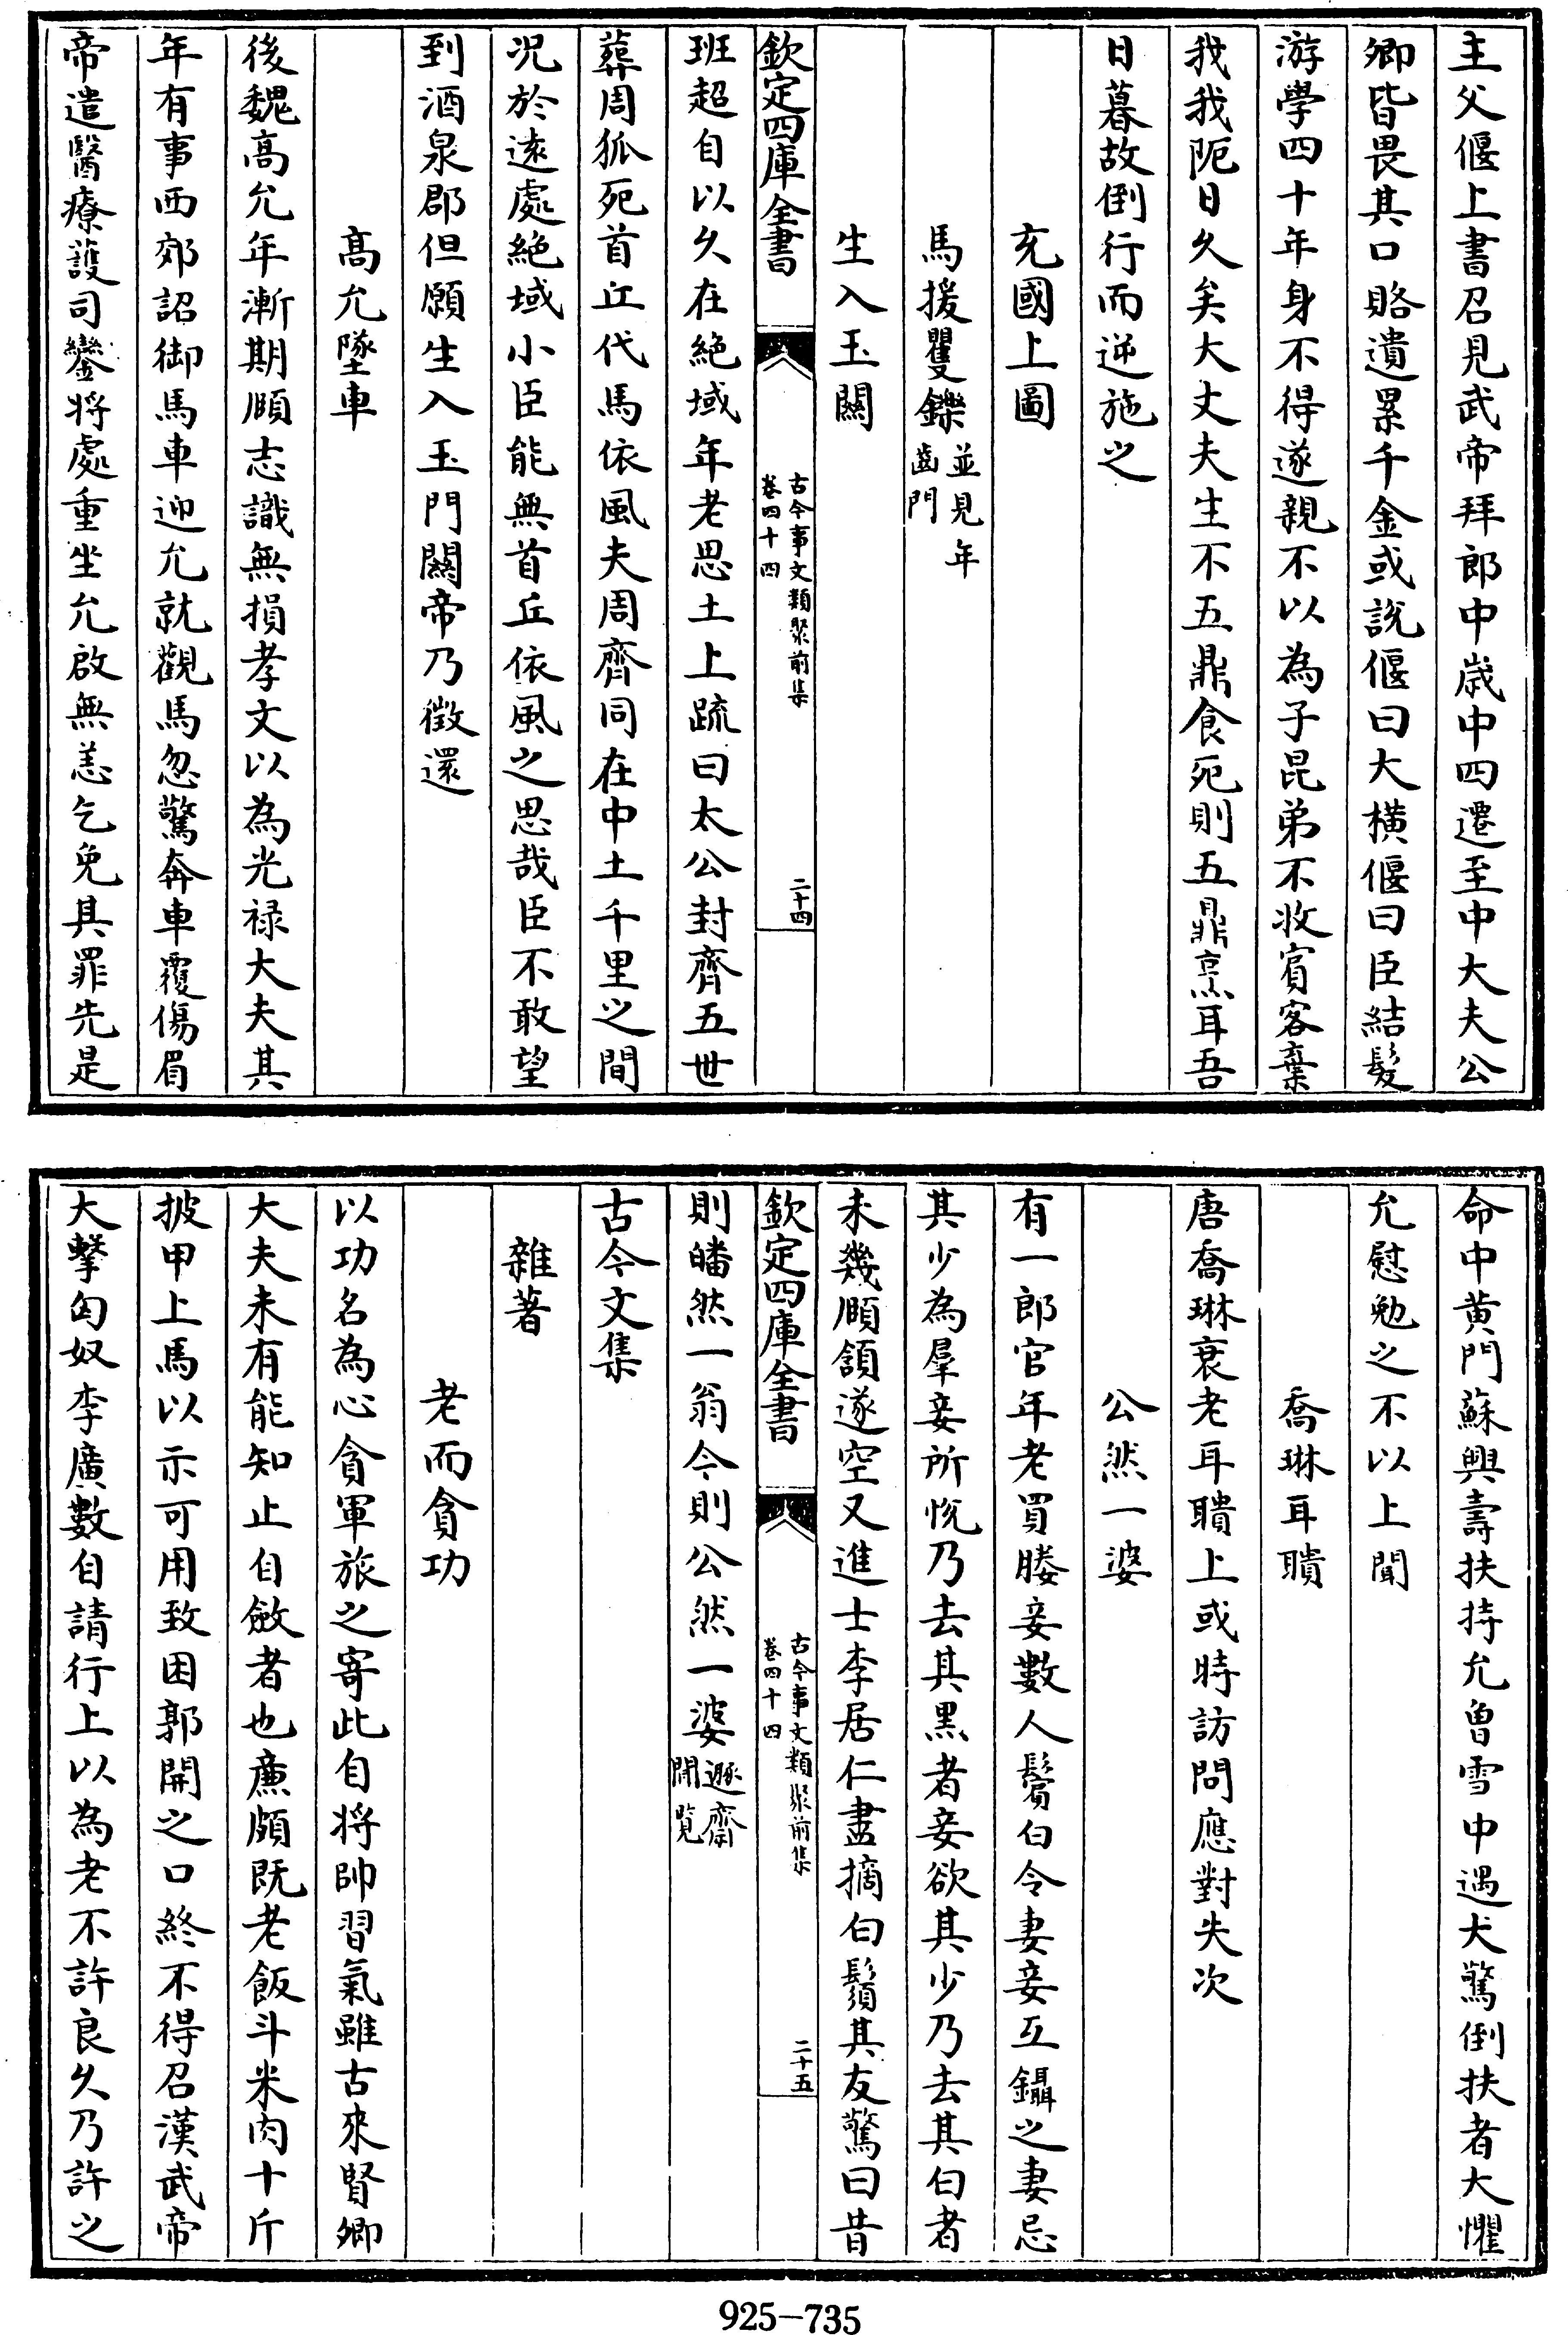 主父偃上書召見武帝拜郎中歳中四遷至中大夫公
卿皆畏其口賂遺累千金或説偃曰大横偃曰臣結髮
游學四十年身不得遂親不以為子昆弟不收賓客棄
我我阨日久矣大丈夫生不五鼎食死則五鼎烹耳吾
日暮故倒行而逆施之
充國上圖
馬援矍鑠並見年齒門
生入玉闗
欽定四庫全書
古今事文類聚前集
卷四十四
二十四
班超自以久在絶域年老思土上疏曰太公封齊五世
葬周狐死首丘代馬依風夫周齊同在中土千里之間
况於逺處絶域小臣能無首丘依風之思哉臣不敢望
到酒泉郡但願生入玉門闗帝乃徴還
高允墜車
後魏高允年漸期頤志識無損孝文以為光禄大夫其
年有事西郊詔御馬車迎允就觀馬忽驚奔車覆傷眉
帝遣醫療護司鑾將處重坐允啟無恙乞免其罪先是
命中黄門蘇興壽扶持允曽雪中遇犬驚倒扶者大懼
允慰勉之不以上聞
喬琳耳聵
唐喬琳衰老耳聵上或時訪問應對失次
公然一婆
有一郎官年老買媵妾數人鬚白令妻妾互鑷之妻忌
其少為羣妾所恱乃去其黒者妾欲其少乃去其白者
未幾頤頷遂空又進士李居仁盡摘白鬚其友驚曰昔
欽定四庫全書
古今事文類聚前集
卷四十四
二十五
則皤然一翁今則公然一婆遯齋閒覧
古今文集
雜著
老而貪功
以功名為心貪軍旅之寄此自將帥習氣雖古來賢卿
大夫未有能知止自斂者也亷頗既老飯斗米肉十斤
披甲上馬以示可用致困郭開之口終不得召漢武帝
大擊匈奴李廣數自請行上以為老不許良久乃許之
925-735